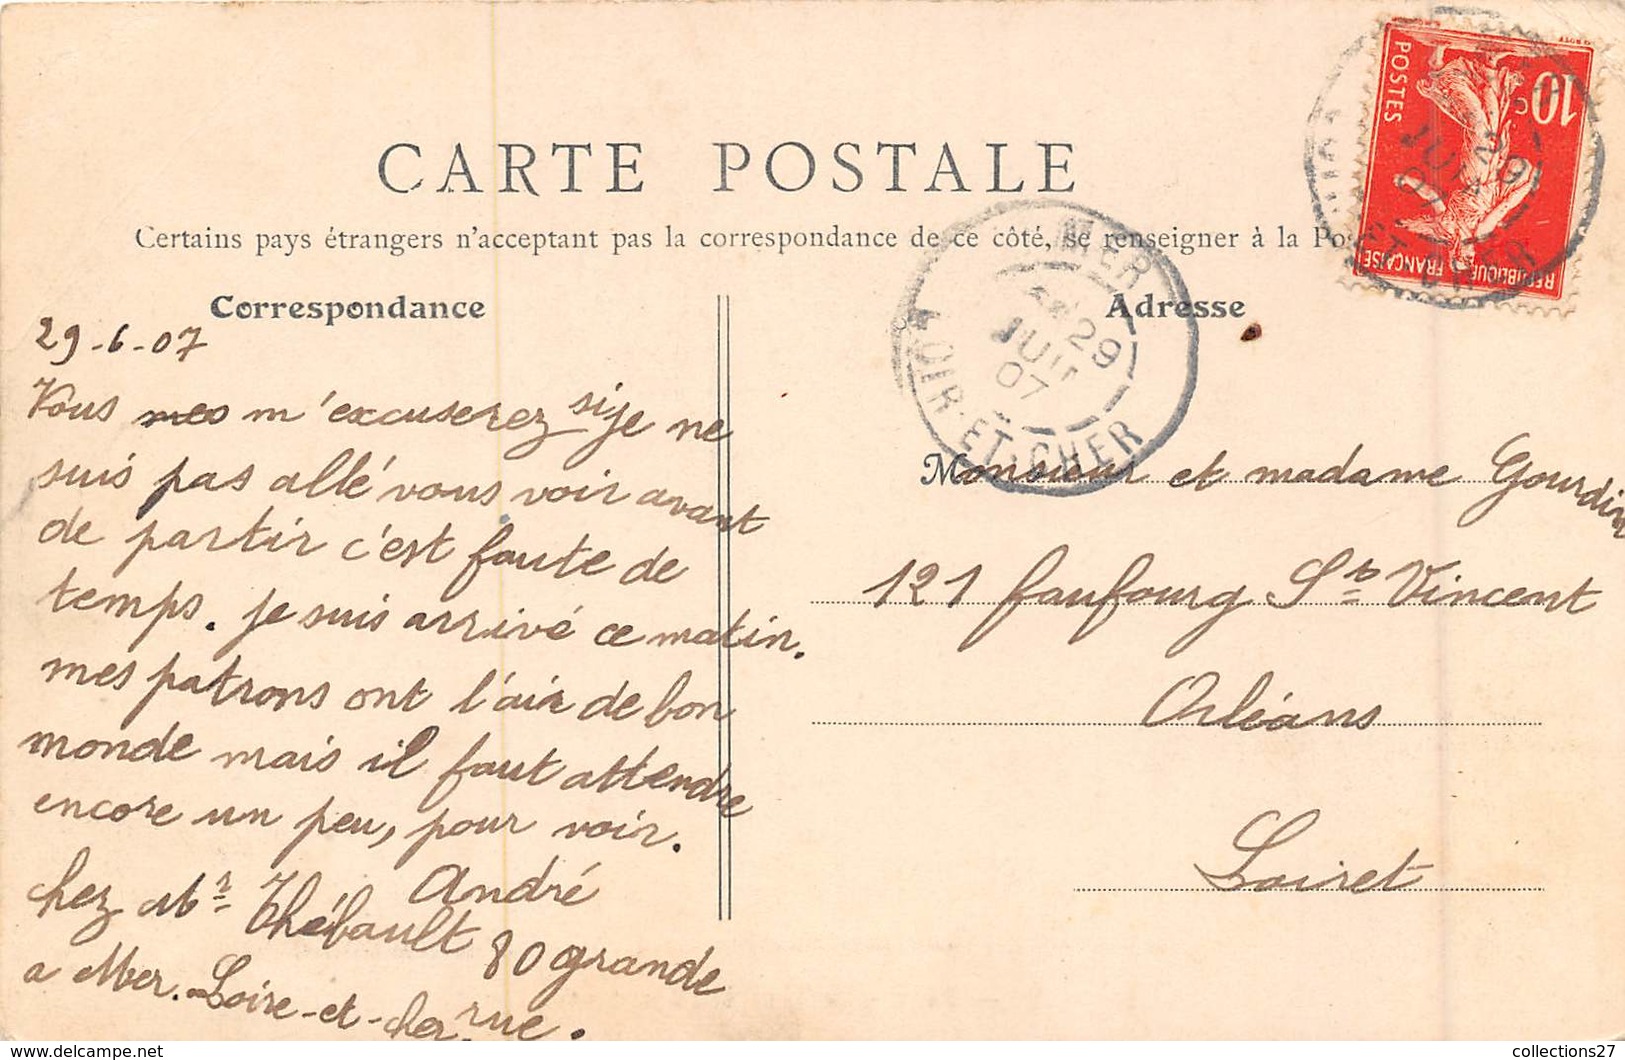 CARTE POSTALE
Certains pays étrangers n'acceptant pas la correspondance de ce côté, se renseigner à la Po
Correspondance
29-6-07
Vous mes m'excuserez si je ne
suis pas allé vous voir avant
de partir c'est faute de
temps. je suis arrivé ce matin.
mes patrons ont l'air de bon
monde mais il faut attendre
encore un peu, pour voir.
André
chez Mr Thébault 80 grande
a Mer. Loire-et-cher rue.
Adresse
Monsieur et madame Gourdin
121 faubourg St Vincent
Orléans
Loiret
10 c
POSTES
REPUBLIQUE FRANÇAISE
29
JUIN
07
ET CHER
MER
29
JUIN
07
LOIR-ET-CHER
collections27